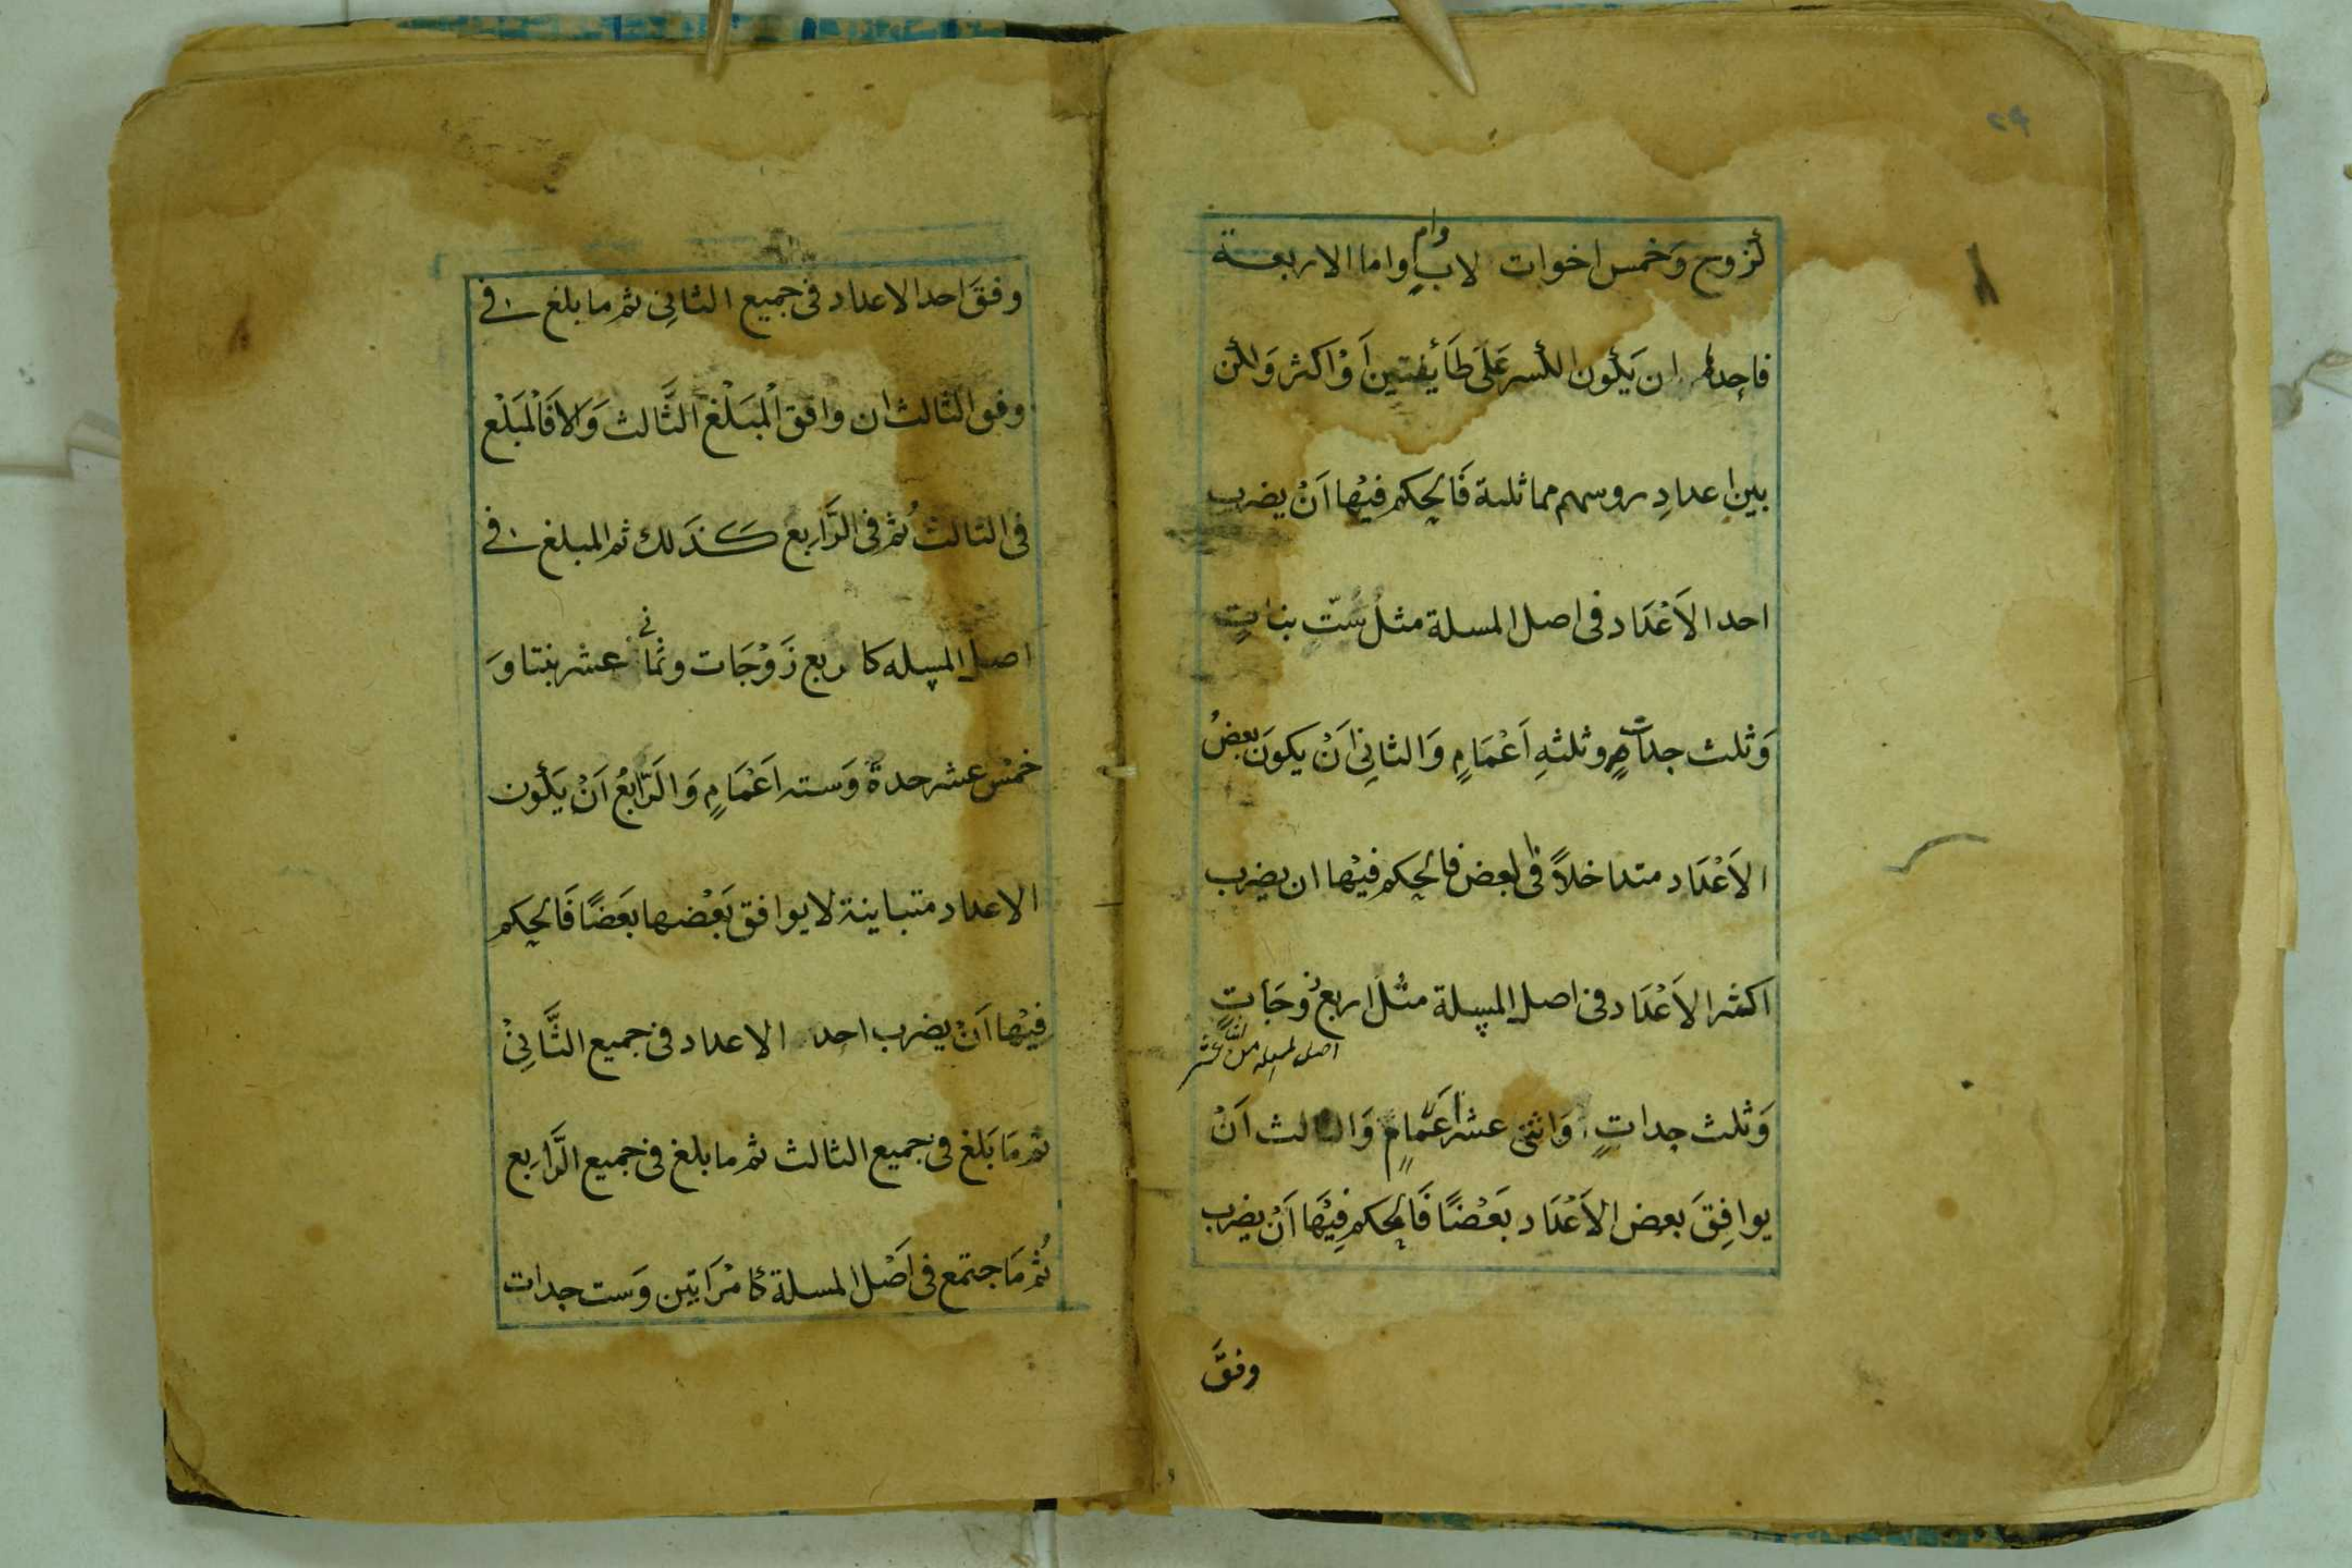 كزوج وَخمس اخوات لابٍ وام واما الاربعة
فاحدها ان يَكون الكسر عَلَى طَائفتين اَوْ اَكثر وَلكن
بين اعدادِ روسهم مماثلة فَالحكم فيْها اَنْ يضرب
احد الاَعْدَاد فى اصل المسلة مثل ستّ بناتٍ
وَثلث جداتٍ وثلثهِ اَعْمَامٍ وَالثانِى اَنْ يكونَ بعضُ
الاَعْدَاد متداخلاً فى بعض فالحكم فيْها ان يضرب
اكثر الاَعْدَاد فى اصل المسلة مثل اربع زوجَاتٍ
اصل المسله من اثنا عشر
وَثلث جداتٍ وَاثنى عشر اعَمامٍ وَالثالث اَنْ
يوافِقَ بعض الاَعْدَاد بَعْضًا فَالحكم فِيْهَا اَنْ يضرب
وفقَ
وفقَ احد الاعداد فى جميع الثانِى ثم ما بلغ فى
وفق الثالث ان وافق اْلمبَلْغ الثَّالث وَالا فَاْلمَبَلْغ
فى الثالث ثُم فى الرَّابع كَذَلك ثم المبلغ فى
اصل المسله كاربع زَوْجَات وثمانى عشر بنتا وَ
خمْس عشر جدة وَسته اَعْمَامٍ وَالرَّابعُ اَنْ يَكون
الاعداد متباينة لا يوافق بَعْضها بَعَضًا فَالحكم
فِيْها اَنْ يضرب احد الاعداد فى جميع الثَّانِىْ
ثم مَا بَلغ فى جميع الثالث ثم ما بلغ فى جميع الرَّابِع
ثُم مَا جتمع فى اَصْل المسلة كامْرَاتين وَست جدات